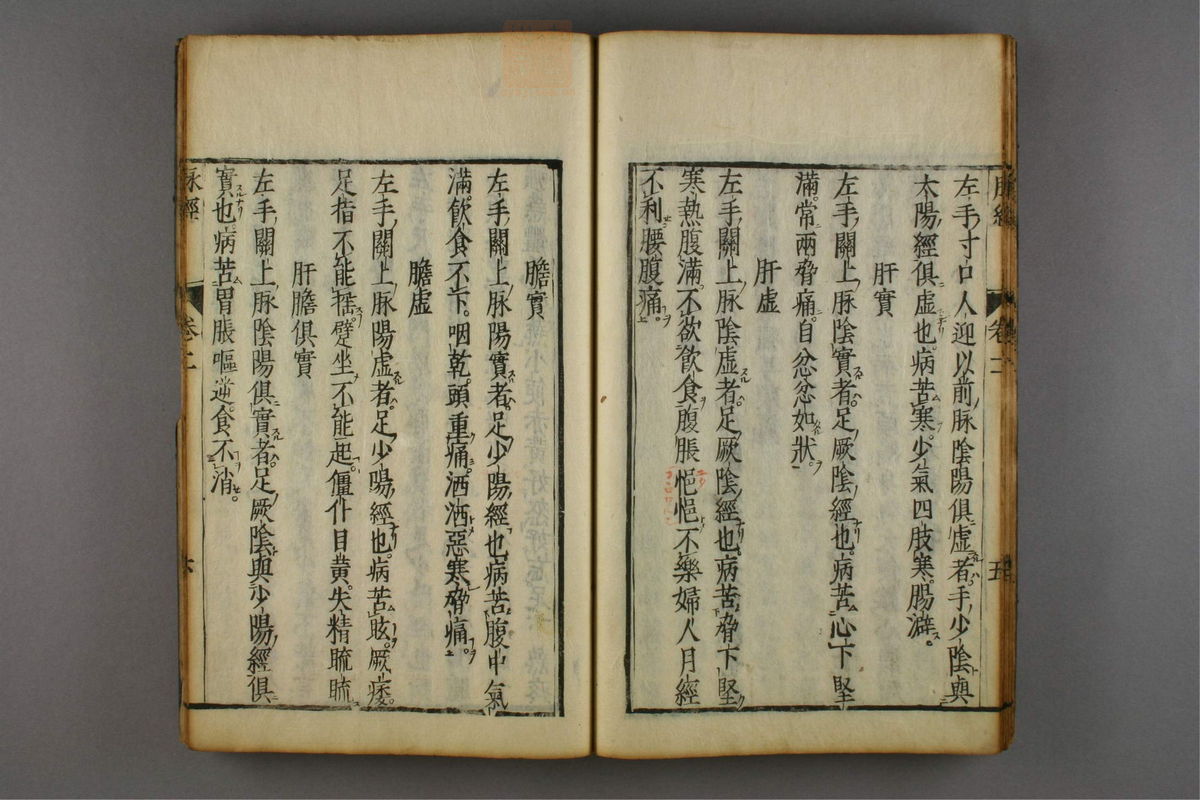 脉經 卷二 五
左手寸口人迎以前脉陰陽俱虚者手少陰與
太陽經俱虚也病苦寒少氣四肢寒腸澼
肝實
左手關上脉陰實者足厥陰經也病苦心下堅
滿常兩脅痛自忿忿如狀
肝虚
左手關上脉陰虚者足厥陰經也病苦脅下堅
寒熱腹滿不欲飲食腹脹悒悒不樂婦人月經
不利腰腹痛
膽實
左手關上脉陽實者足少陽經也病苦腹中氣
滿飲食不下咽乾頭重痛洒洒惡寒脅痛
膽虚
左手關上脉陽虚者足少陽經也病苦眩厥痿
足指不能揺躄坐不能起僵仆目黄失精䀮䀮
肝膽俱實
左手關上脉陰陽俱實者足厥陰與少陽經俱
實也病苦胃脹嘔逆食不消
脉經 卷二 六